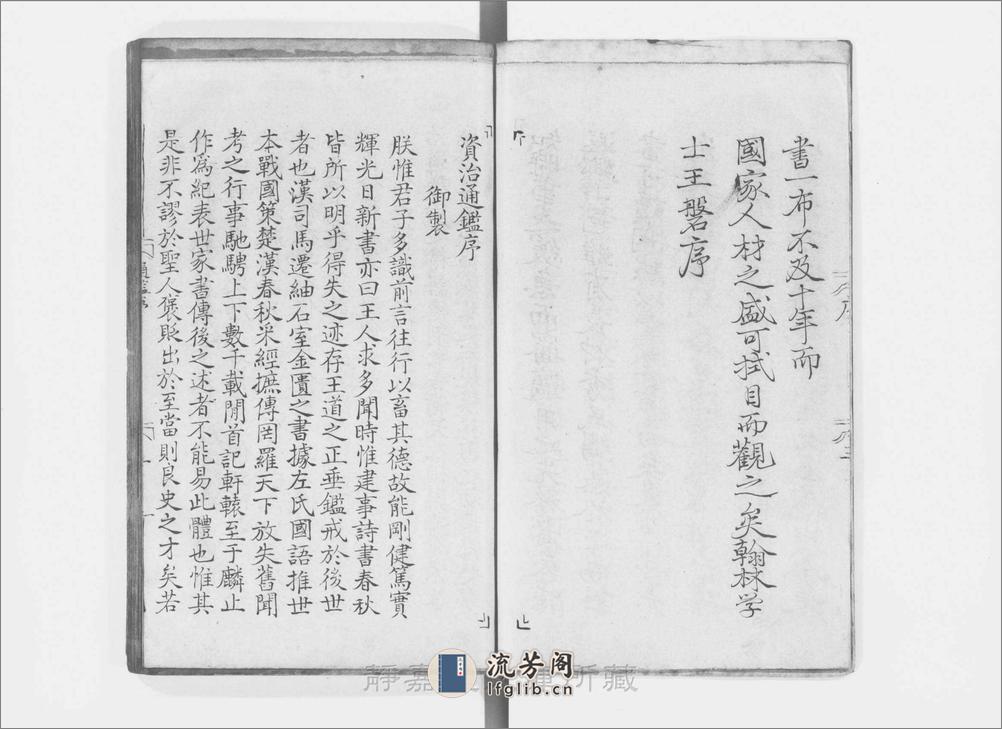 書一布不及十年而
國家人材之盛可拭目而觀之矣翰林学
士王磐序
資治通鑑序
御製
朕惟君子多識前言往行以畜其德故能剛健篤實
輝光日新書亦曰王人求多聞時惟建事詩書春秋
皆所以明乎得失之迹存王道之正垂鑑戒於後世
者也漢司馬遷紬石室金匱之書據左氏國語推世
本戰國策楚漢春秋采經摭傳罔羅天下放失舊聞
考之行事馳騁上下數千載閒首記軒轅至于麟止
作爲紀表世家書傳後之述者不能易此體也惟其
是非不謬於聖人褒貶出於至當則良史之才矣若
流芳阁
lfglib.cn
所藏